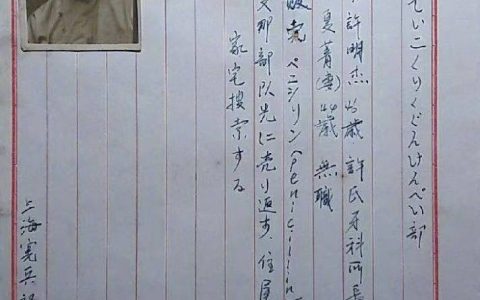 ていこくりくぐんけんぺい部
許明杰 45歳 許氏牙科所長
夏菁(妻) 44歳 無職
販売 ペニシリン(penicillin
支那部队先に売り返す、住居
家宅捜索する
上海憲兵